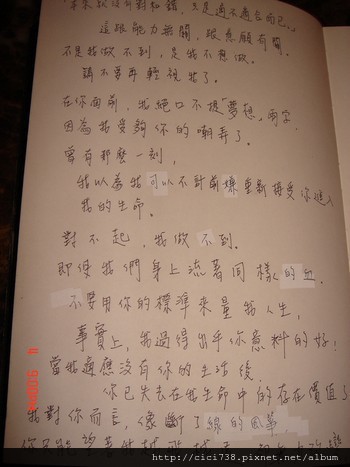 本來就沒有對和錯，只是適不適合自己..
這跟能力無關，跟意願有關
不是我做不到，是我不想做。
請不要再輕視我了。
在你面前，我絕口不提「夢想」兩字
因為我受夠你的嘲弄了。
曾有那麼一刻，
我以為我可以不計前嫌重新接受你進入
我的生命。
對不起，我做不到。
即使我們身上流著同樣的血
不要用你的標準來量我人生，
事實上，我過得出乎你意料的好；
當我適應沒有你的生活後，
你已失去在我生命中的存在價值了
我對你而言，像斷了線的風箏
你只能望著我越飛越
http://cici738.pixnet.net/album